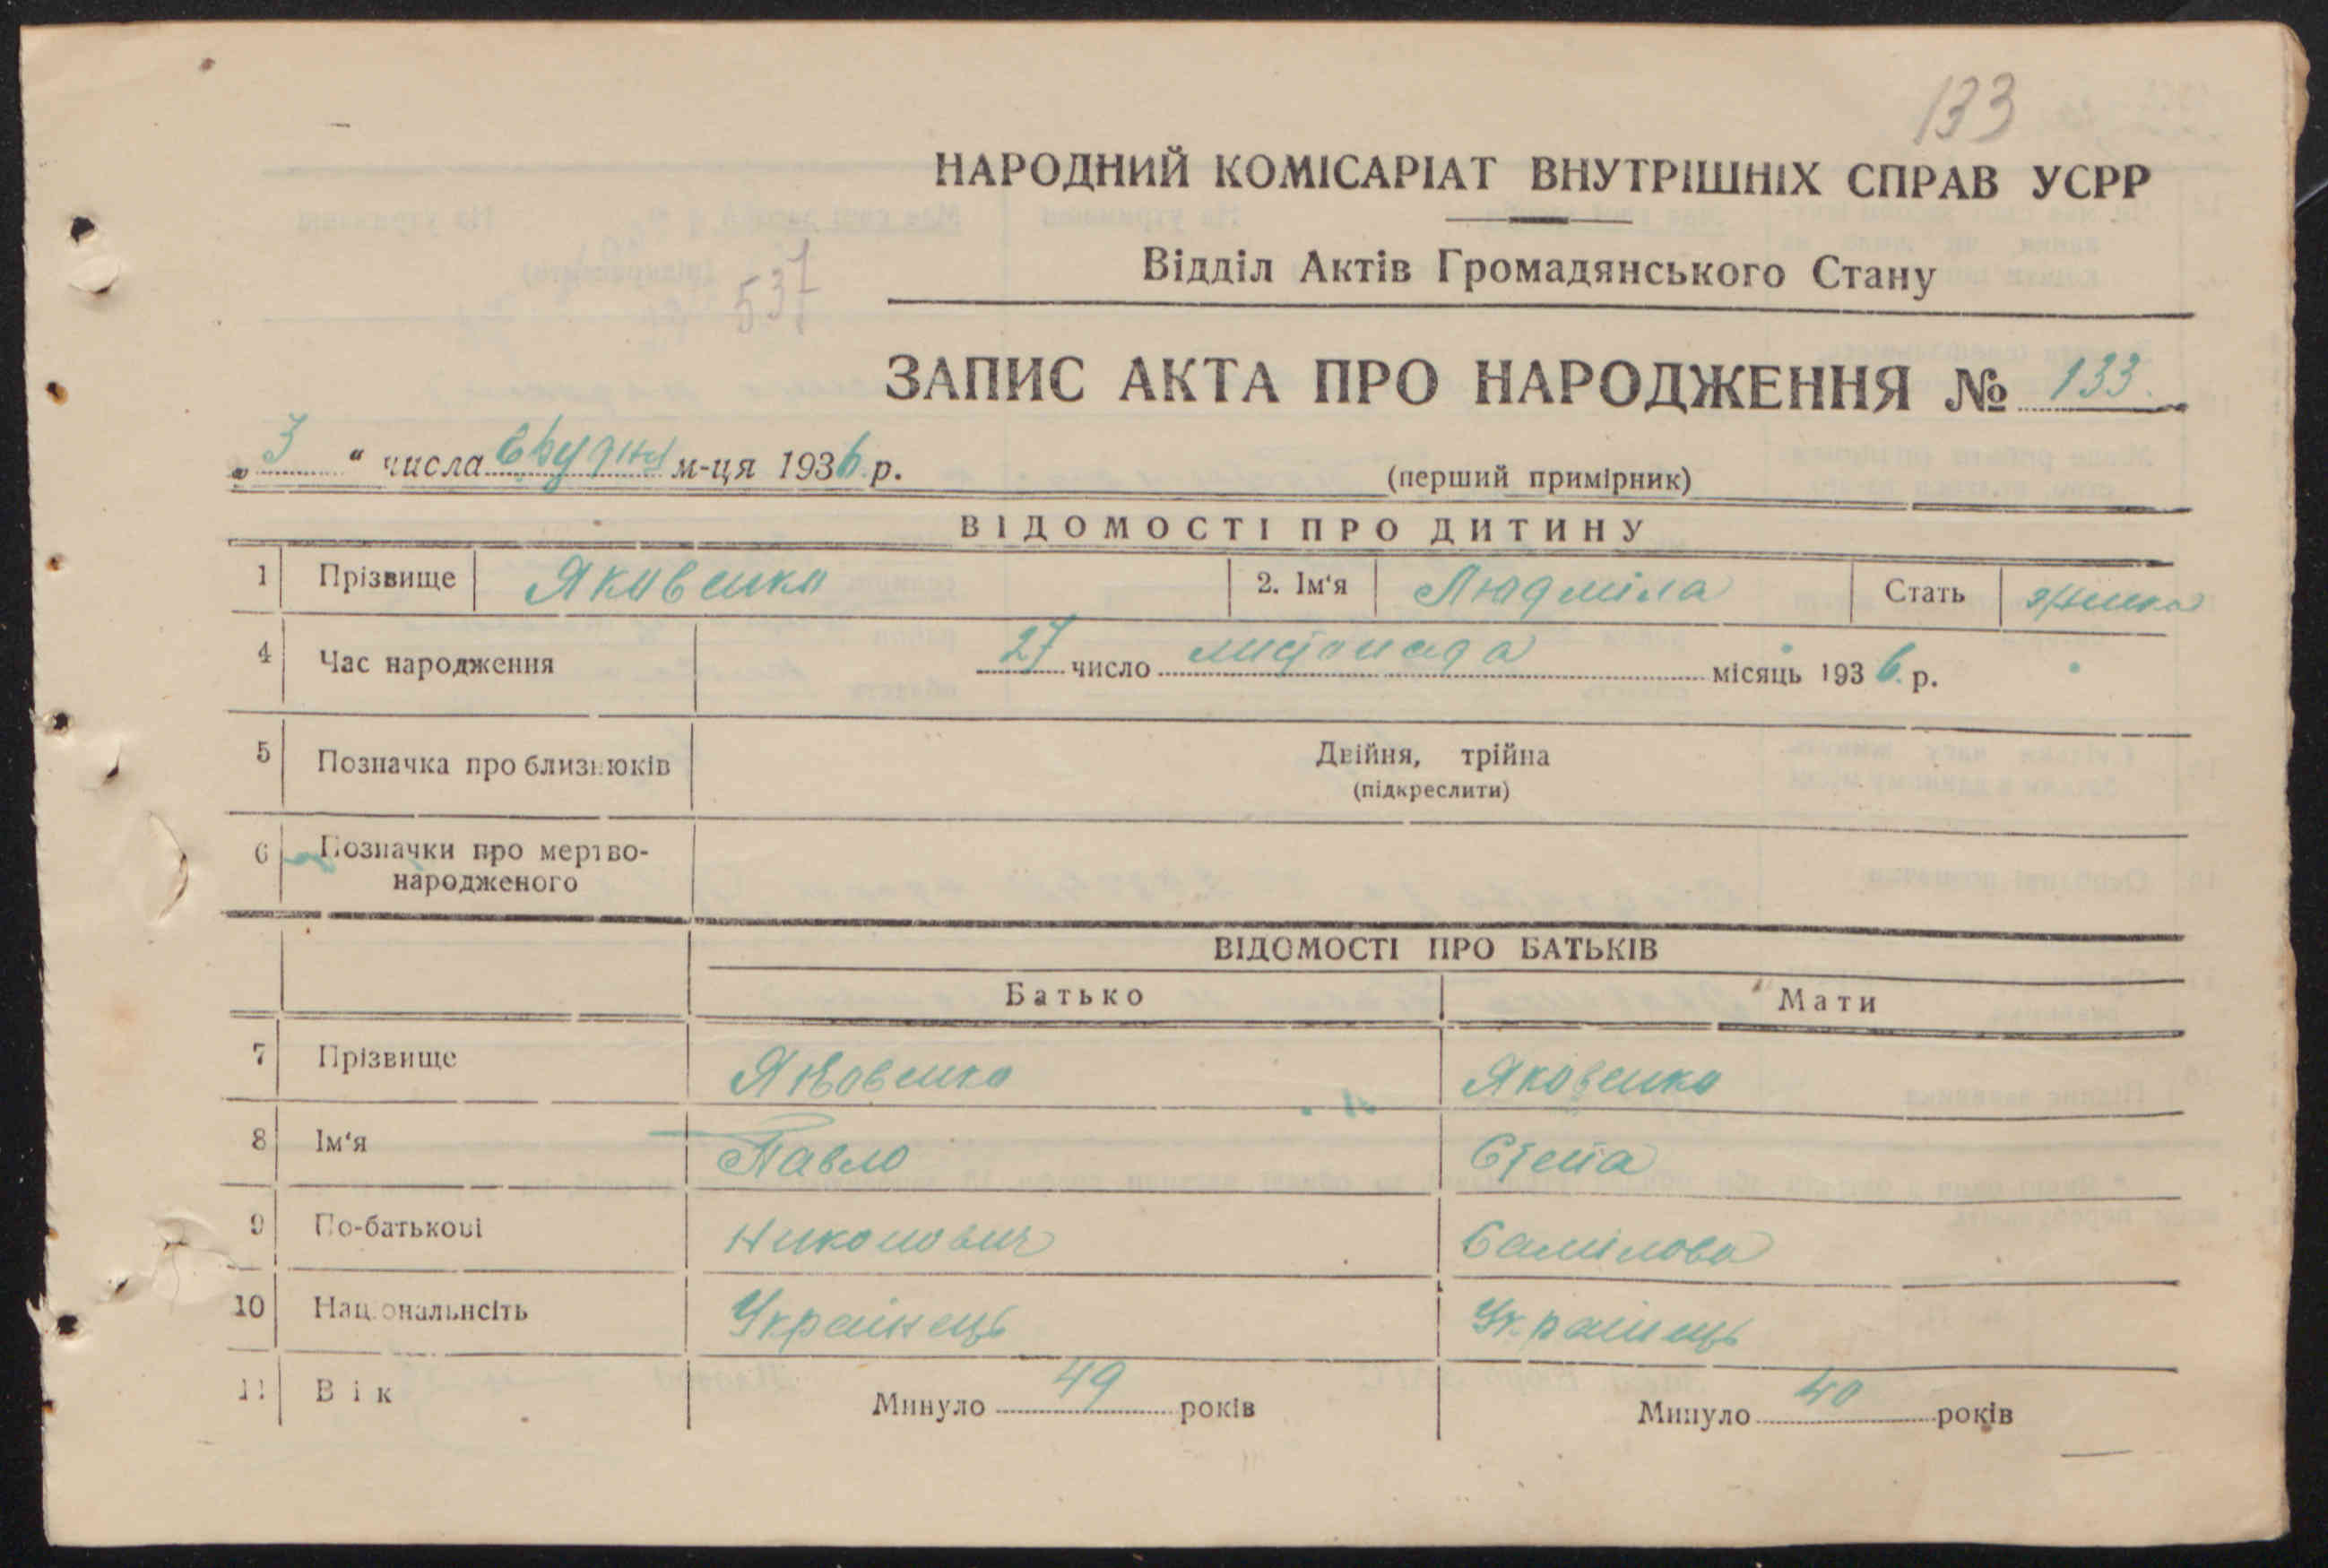 133
НАРОДНИЙ КОМІСАРІАТ ВНУТРІШНІХ СПРАВ УСРР
Відділ Актів Громадянського Стану
537
ЗАПИС АКТА ПРО НАРОДЖЕННЯ № 133.
„ 3 “ числа грудня м-ця 1936 р.
(перший примірник)
ВІДОМОСТІ ПРО ДИТИНУ
1 Прізвище Яковенко 2. Ім‘я Людміла Стать жінка
4 Час народження 27 число листопада місяць 1936 р.
5 Позначка про близнюків Двійня, трійна
(підкреслити)
6 Позначки про мертво-
народженого
ВІДОМОСТІ ПРО БАТЬКІВ
Батько Мати
7 Прізвище Яковенко Яковенко
8 Ім‘я Павло Степа
9 По-батькові Никонович
10 Національнсіть Українець Українець
11 Вік Минуло 49 років Минуло 40 років